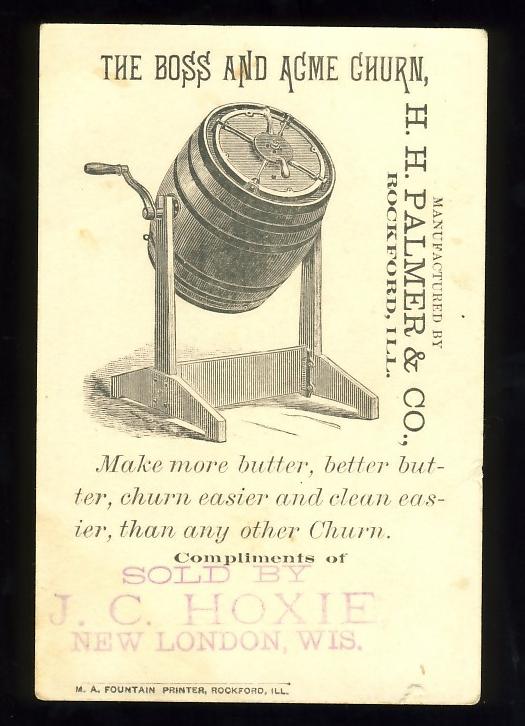 THE BOSS AND ACME CHURN,
MANUFACTURED BY
H. H. PALMER & CO.,
ROCKFORD, ILL.
Make more butter, better but-
ter, churn easier and clean eas-
ier, than any other Churn.
Compliments of
SOLD BY
J. C. HOXIE
NEW LONDON, WIS.
M. A. FOUNTAIN PRINTER, ROCKFORD, ILL.